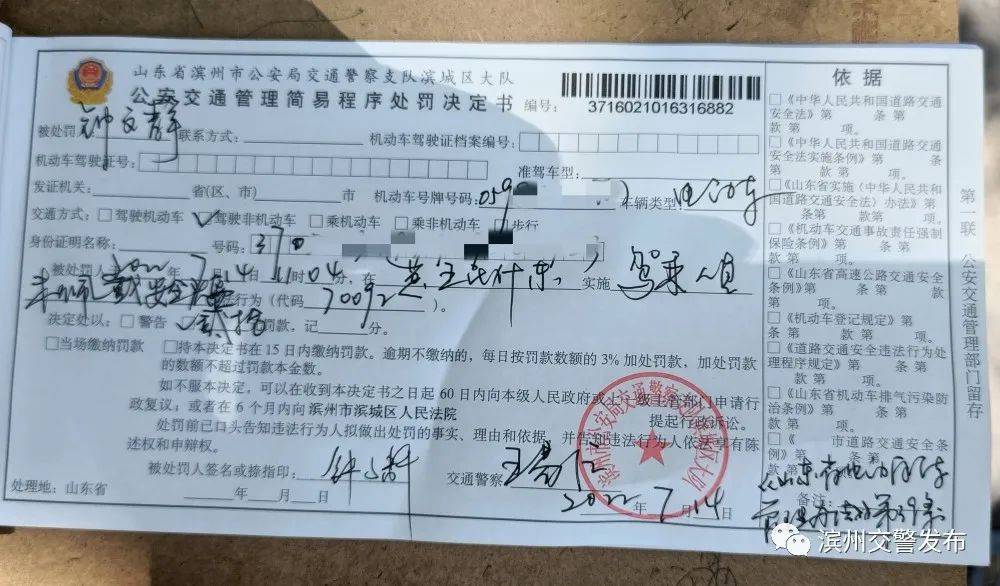 山东省滨州市公安局交通警察支队滨城区大队
公安交通管理简易程序处罚决定书 编号: 3716021016316882
被处罚 钟文静 联系方式: 机动车驾驶证档案编号:
机动车驾驶证号: 准驾车型:
发证机关: 省(区、市) 市 机动车号牌号码: 059 车辆类型: 电动车
交通方式: □驾驶机动车 ✓驾驶非机动车 □乘机动车 □乘非机动车 □步行
身份证明名称: 号码: 370
被处罚人 2022 年 7 月 14 日 11 时 04 分, 在 实施 驾乘人员
未佩戴安全头盔 行为(代码 70092 )。
决定处以: □警告 罚款, 记 分。
□当场缴纳罚款 □持本决定书在15日内缴纳罚款。逾期不缴纳的, 每日按罚款数额的3%加处罚款, 加处罚款
的数额不超过罚款本金数。
如不服本决定, 可以在收到本决定书之日起60日内向本级人民政府或上一级主管部门申请行
政复议; 或者在6个月内向滨州市滨城区人民法院 提起行政诉讼。
处罚前已口头告知违法行为人拟做出处罚的事实、理由和依据, 并告知违法行为人依法享有陈
述权和申辩权。
被处罚人签名或捺指印: 交通警察
处理地: 山东省 年 月 日 2022 年 7 月 14 日
依据
□《中华人民共和国道路交通
安全法》第 条 第
款 第 项。
□《中华人民共和国道路交通
安全法实施条例》第 条
第 款 第 项。
□《山东省实施〈中华人民共和
国道路交通安全法〉办法》第
条 第 款 第 项。
□《机动车交通事故责任强制
保险条例》第 条 第 款。
□《山东省高速公路交通安全
条例》第 条 第 款 第 项。
□《机动车登记规定》第
条 第 款 第 项。
□《道路交通安全违法行为处
理程序规定》第 条 第 款。
□《山东省机动车排气污染防
治条例》第 条 第 款。
□《 市道路交通安全条
例》第 条 第 款 第 项。
备注:
《山东省电动自行车
管理办法》第39条
第一联 公安交通管理部门留存
滨州交警发布